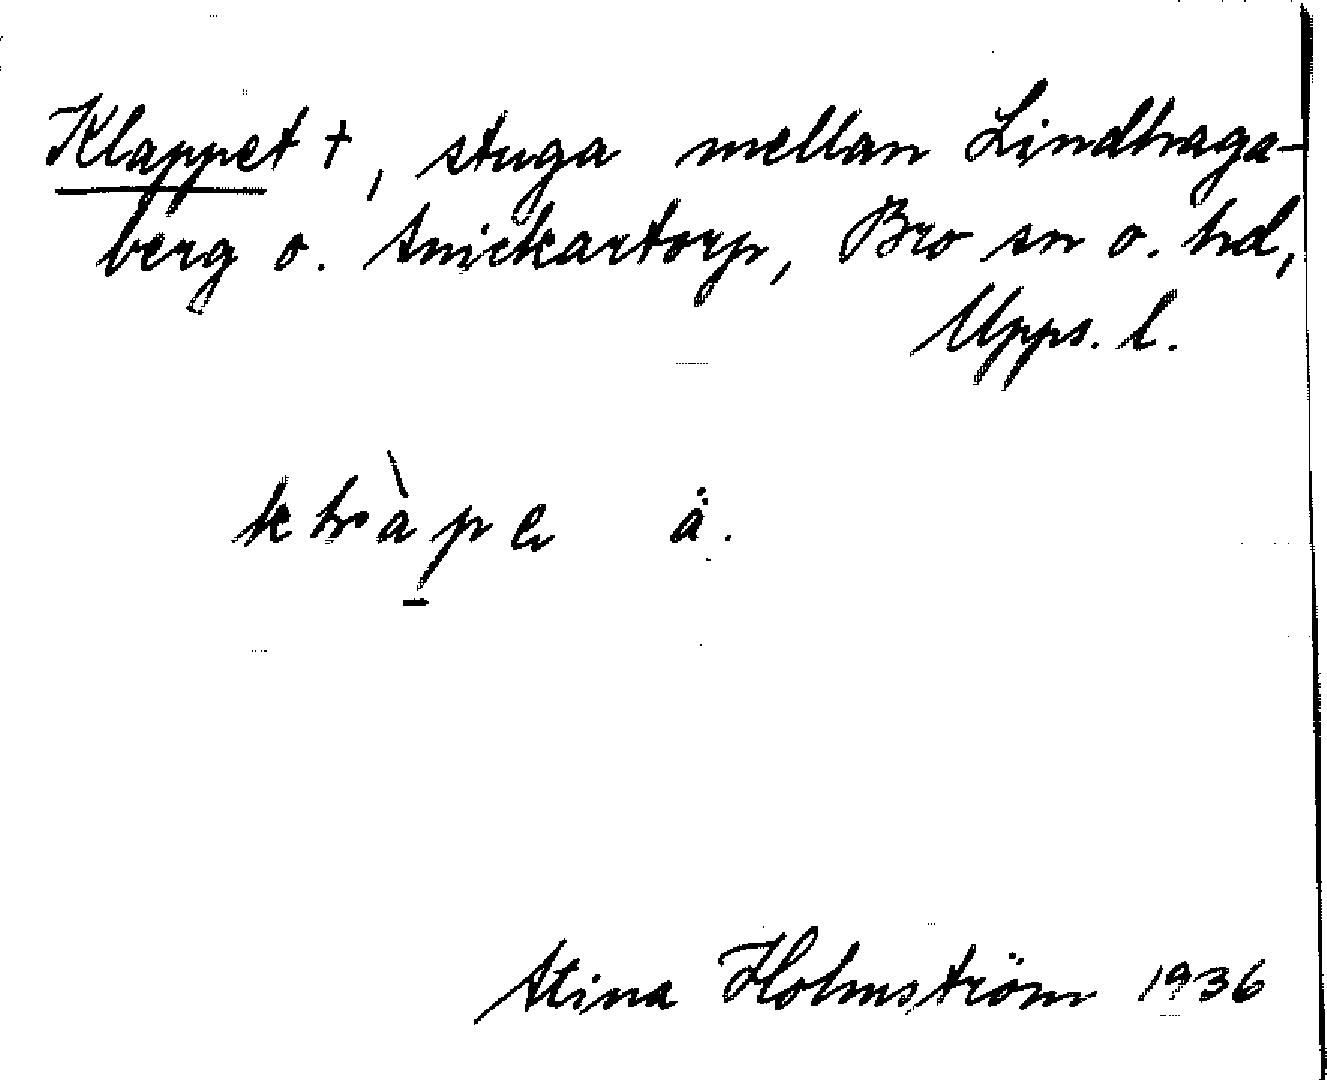 Klappet †, stuga mellan Lindhaga-
berg o. Snickartorp, Bro sn o. hd,
Upps. l.
ä.
Stina Holmström 1936